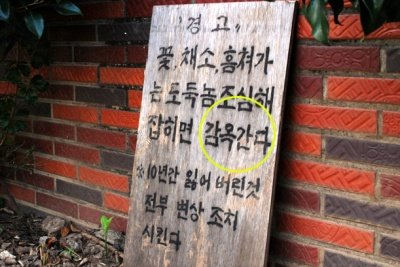 "경고"
꽃, 채소, 훔쳐가
는 도둑놈 조심해
잡히면 감옥간다
※10년간 잃어버린것
전부 변상 조처
시킨다